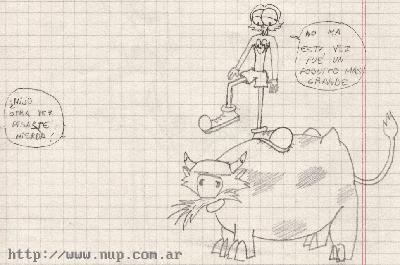 ¡HIJO
OTRA VEZ
PISASTE
MIERDA!
NO MA
ESTA VEZ
FUE UN
POQUITO MAS
GRANDE
http://www.nup.com.ar